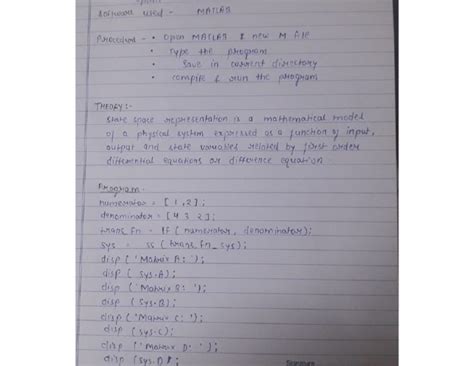 Software used - MATLAB
Procedure - • Open MATLAB & new M file
• Type the program
• Save in current directory
• compile & run the program
THEORY:-
State space representation is a mathematical model
of a physical system expressed as a function of input,
output and state variables related by first order
differential equations or difference equation
Program -
numerator = [1,2];
denominator = [4 3 2];
trans_fn = tf (numerator, denominator);
sys = ss (trans_fn_sys);
disp ('Matrix A: ');
disp (sys.A);
disp ('Matrix B: ');
disp (sys.B);
disp ('Matrix C: ');
disp (sys.C);
disp ('Matrix D: ');
disp (sys.D);
Signature